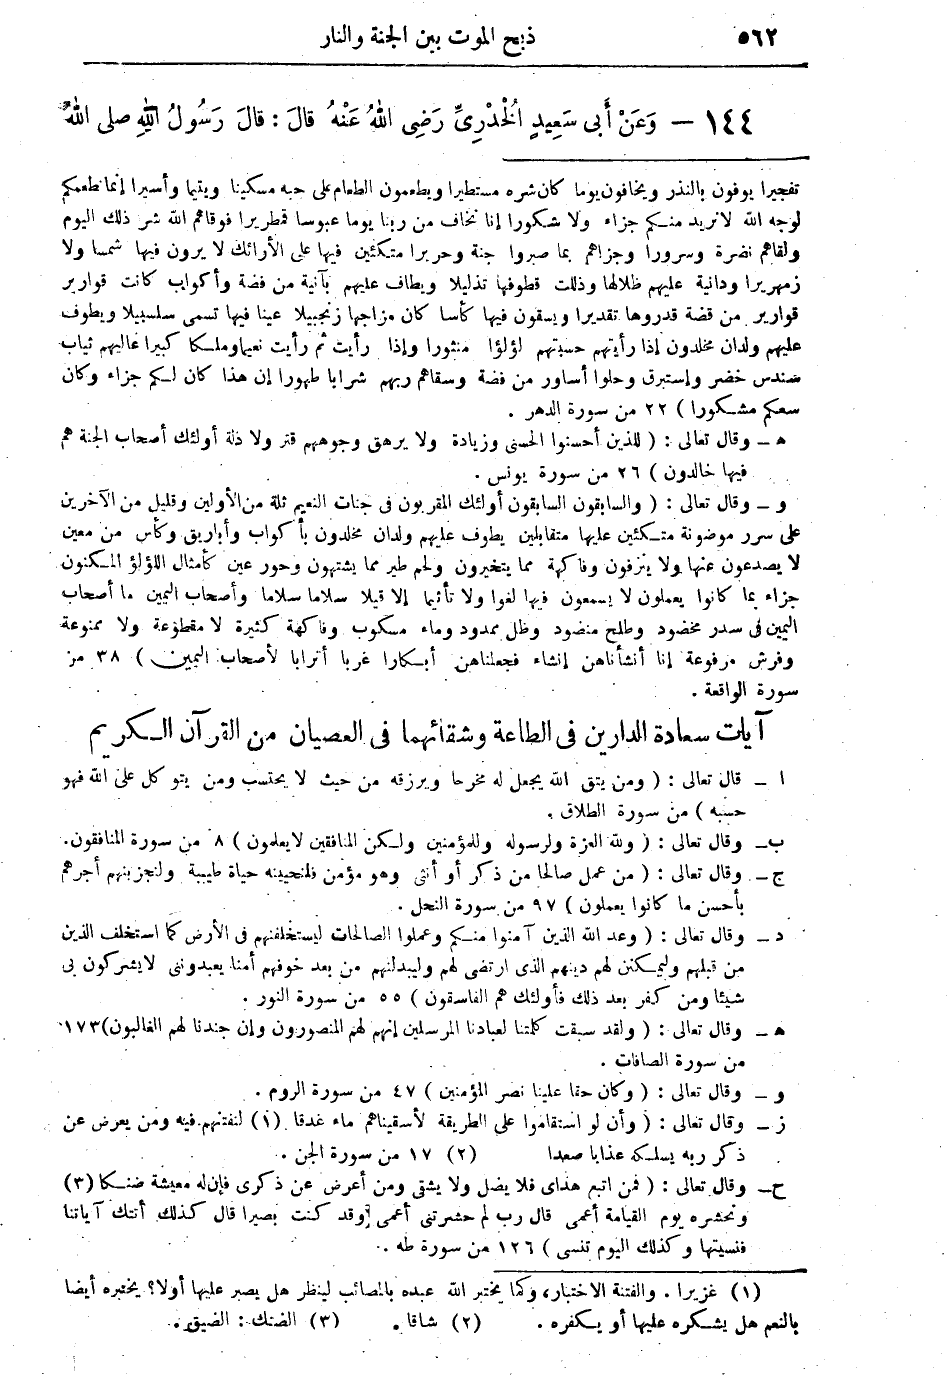 ٥٦٢ ذبح الموت بين الجنة والنار
١٤٤ – وَعَنْ أَبِى سَعِيدٍ الْخُدْرِىِّ رَضِىَ اللهُ عَنْهُ قالَ : قالَ رَسُولُ اللهِ صلى اللهُ
تفجيرا يوفون بالنذر ويخافون يوما كان شره مستطيرا ويطعمون الطعام على حبه مسكينا ويتيما وأسيرا إنما نطعمكم
لوجه الله لا نريد منكم جزاء ولا شكورا إنا نخاف من ربنا يوما عبوسا قمطريرا فوقاهم الله شر ذلك اليوم
ولقاهم نضرة وسرورا وجزاهم بما صبروا جنة وحريرا متكئين فيها على الأرائك لا يرون فيها شمسا ولا
زمهريرا ودانية عليهم ظلالها وذللت قطوفها تذليلا ويطاف عليهم بآنية من فضة وأكواب كانت قوارير
قوارير من فضة قدروها تقديرا ويسقون فيها كأسا كان مزاجها زنجبيلا عينا فيها تسمى سلسبيلا ويطوف
عليهم ولدان مخلدون إذا رأيتهم حسبتهم لؤلؤا منثورا وإذا رأيت ثم رأيت نعيما وملكا كبيرا عاليهم ثياب
سندس خضر وإستبرق وحلوا أساور من فضة وسقاهم ربهم شرابا طهورا إن هذا كان لكم جزاء وكان
سعيكم مشكورا ) ٢٢ من سورة الدهر .
هـ – وقال تعالى : ( للذين أحسنوا الحسنى وزيادة ولا يرهق وجوههم قتر ولا ذلة أولئك أصحاب الجنة هم
فيها خالدون ) ٢٦ من سورة يونس .
و – وقال تعالى : ( والسابقون السابقون أولئك المقربون فى جنات النعيم ثلة من الأولين وقليل من الآخرين
على سرر موضونة متكئين عليها متقابلين يطوف عليهم ولدان مخلدون بأكواب وأباريق وكأس من معين
لا يصدعون عنها ولا ينزفون وفاكهة مما يتخيرون ولحم طير مما يشتهون وحور عين كأمثال اللؤلؤ المكنون
جزاء بما كانوا يعملون لا يسمعون فيها لغوا ولا تأثيما إلا قيلا سلاما سلاما وأصحاب اليمين ما أصحاب
اليمين فى سدر مخضود وطلح منضود وظل ممدود وماء مسكوب وفاكهة كثيرة لا مقطوعة ولا ممنوعة
وفرش مرفوعة إنا أنشأناهن إنشاء فجعلناهن أبكارا عربا أترابا لأصحاب اليمين ) ٣٨ من
سورة الواقعة .
آيات سعادة الدارين فى الطاعة وشقائهما فى العصيان من القرآن الكريم
ا – قال تعالى : ( ومن يتق الله يجعل له مخرجا ويرزقه من حيث لا يحتسب ومن يتوكل على الله فهو
حسبه ) من سورة الطلاق .
ب – وقال تعالى : ( ولله العزة ولرسوله وللمؤمنين ولكن المنافقين لا يعلمون ) ٨ من سورة المنافقون.
ج – وقال تعالى : ( من عمل صالحا من ذكر أو أنثى وهو مؤمن فلنحيينه حياة طيبة ولنجزينهم أجرهم
بأحسن ما كانوا يعملون ) ٩٧ من سورة النحل .
د – وقال تعالى : ( وعد الله الذين آمنوا منكم وعملوا الصالحات ليستخلفنهم فى الأرض كما استخلف الذين
من قبلهم وليمكنن لهم دينهم الذى ارتضى لهم وليبدلنهم من بعد خوفهم أمنا يعبدوننى لا يشركون بى
شيئا ومن كفر بعد ذلك فأولئك هم الفاسقون ) ٥٥ من سورة النور .
هـ – وقال تعالى : ( ولقد سبقت كلمتنا لعبادنا المرسلين إنهم لهم المنصورون وإن جندنا لهم الغالبون) ١٧٣
من سورة الصافات .
و – وقال تعالى : ( وكان حقا علينا نصر المؤمنين ) ٤٧ من سورة الروم .
ز – وقال تعالى : ( وأن لو استقاموا على الطريقة لأسقيناهم ماء غدقا (١) لنفتنهم فيه ومن يعرض عن
ذكر ربه يسلكه عذابا صعدا (٢) ١٧ من سورة الجن .
ح – وقال تعالى : ( فمن اتبع هداى فلا يضل ولا يشقى ومن أعرض عن ذكرى فإن له معيشة ضنكا (٣)
ونحشره يوم القيامة أعمى قال رب لم حشرتنى أعمى وقد كنت بصيرا قال كذلك أتتك آياتنا
فنسيتها وكذلك اليوم تنسى ) ١٢٦ من سورة طه .
(١) غزيرا . والفتنة الاختبار، وكما يختبر الله عبده بالمصائب لينظر هل يصبر عليها أولا؟ يختبره أيضا
بالنعم هل يشكره عليها أو يكفره . (٢) شاقا . (٣) الضنك : الضيق .